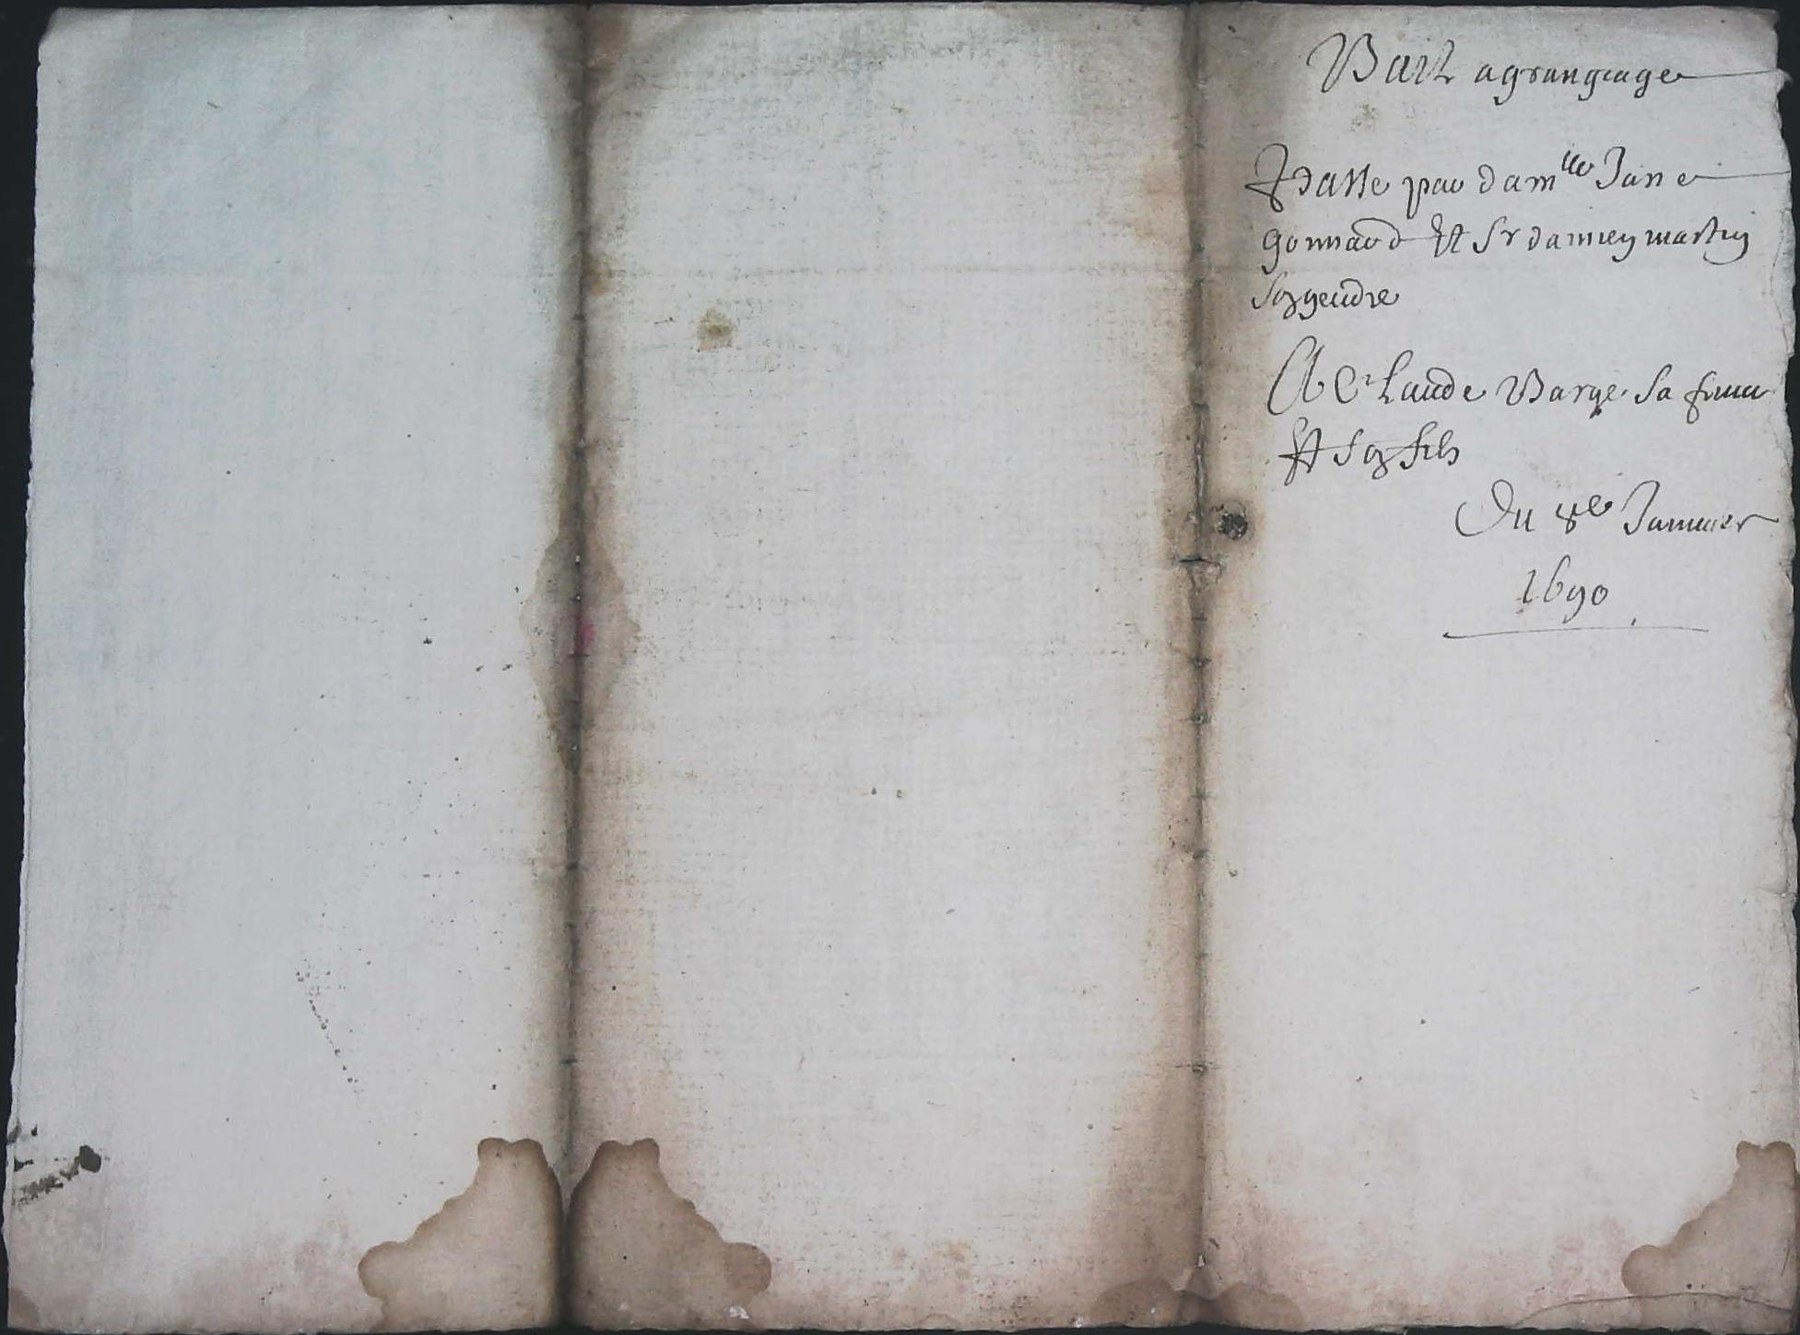 Bail agrangeage
Passe par dam<sup>lle</sup> Jane
gonnard Et Sr damien martin
son gendre
A Claude Barge sa femme
Et son fils
Du 8e Januier
1690